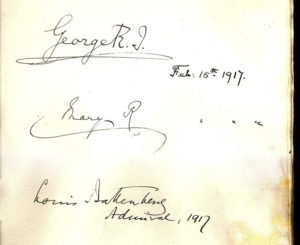 George R.I.
Feb: 15th 1917.
Mary R " " "
Louis Battenberg
Admiral, 1917